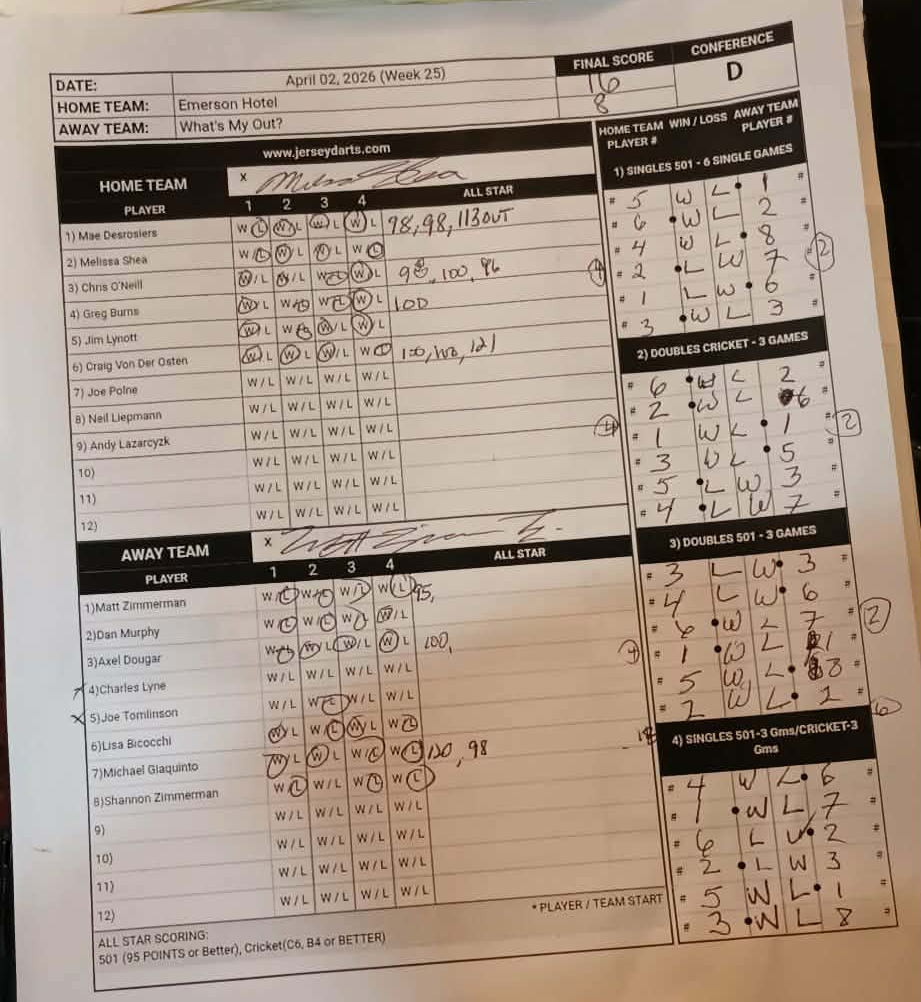 DATE: April 02, 2026 (Week 25) FINAL SCORE CONFERENCE
HOME TEAM: Emerson Hotel 16 D
AWAY TEAM: What's My Out? 8
www.jerseydarts.com
HOME TEAM x
PLAYER 1 2 3 4 ALL STAR
1) Mae Desrosiers W L W L W L W L 98, 98, 113 OUT
2) Melissa Shea W L W L W L W L
3) Chris O'Neill W/L W/L W L W L 98, 100, 96
4) Greg Burns W L W L W L W L 100
5) Jim Lynott W L W L W L W L
6) Craig Von Der Osten W L W L W L W L 100, 100, 121
7) Joe Polne W/L W/L W/L W/L
8) Neil Liepmann W/L W/L W/L W/L
9) Andy Lazarcyzk W/L W/L W/L W/L
10) W/L W/L W/L W/L
11) W/L W/L W/L W/L
12) W/L W/L W/L W/L
AWAY TEAM x
PLAYER 1 2 3 4 ALL STAR
1)Matt Zimmerman W/L W L W/L W L 95,
2)Dan Murphy W L W L W L W/L
3)Axel Dougar W L W L W/L W L 100,
4)Charles Lyne W/L W/L W/L W/L
x 5)Joe Tomlinson W/L W L W/L W/L
6)Lisa Bicocchi W L W L W L W L
7)Michael Giaquinto W L W L W L W L 100, 98
8)Shannon Zimmerman W L W/L W L W L
9) W/L W/L W/L W/L
10) W/L W/L W/L W/L
11) W/L W/L W/L W/L
12) W/L W/L W/L W/L
* PLAYER / TEAM START
ALL STAR SCORING:
501 (95 POINTS or Better), Cricket(C6, B4 or BETTER)
HOME TEAM WIN / LOSS AWAY TEAM
PLAYER # PLAYER #
1) SINGLES 501 - 6 SINGLE GAMES
# 5 W L • 1 #
# 6 • W L 2 #
# 4 W L • 8 #
4 # 2 • L W 7 # 2
# 1 L W • 6 #
# 3 • W L 3 #
2) DOUBLES CRICKET - 3 GAMES
# 6 • W L 2 #
# 2 • W L 6 #
4 # 1 W L • 1 # 2
# 3 W L • 5 #
# 5 • L W 3 #
# 4 • L W 7 #
3) DOUBLES 501 - 3 GAMES
# 3 L W • 3 #
# 4 L W • 6 #
# 6 • W L 7 # 2
4 # 1 • W L 1 #
# 5 W L • 8 #
# 2 W L • 2 # 6
4) SINGLES 501-3 Gms/CRICKET-3
Gms
# 4 W L • 6 #
# 1 • W L 7 #
# 6 L W • 2 #
# 2 • L W 3 #
# 5 W L • 1 #
# 3 • W L 8 #